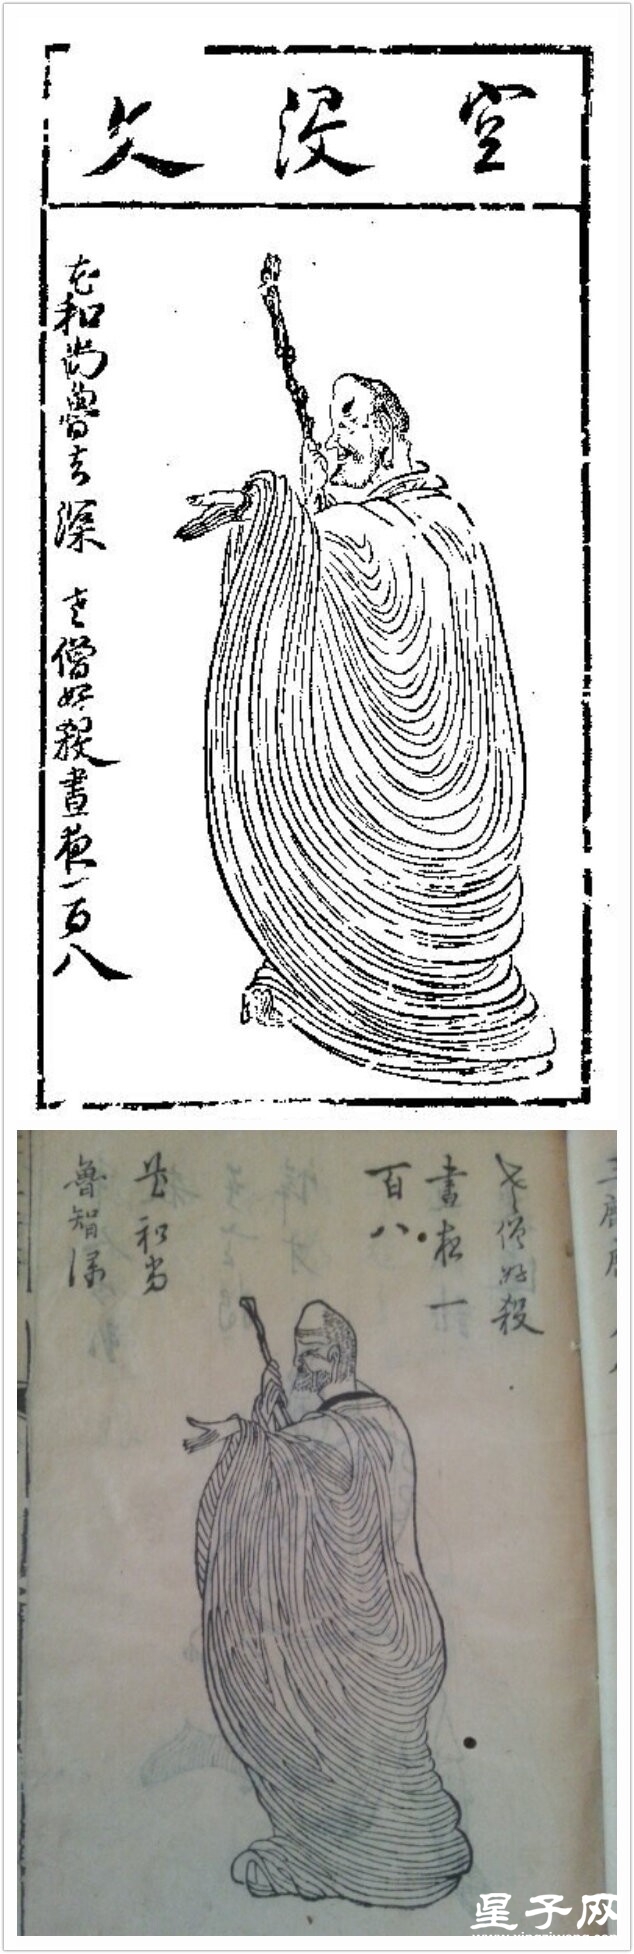 空没文
花和尚魯智深 老僧好殺晝夜一百八
老僧好殺
晝夜一
百八
花和尚
魯智深
星子网